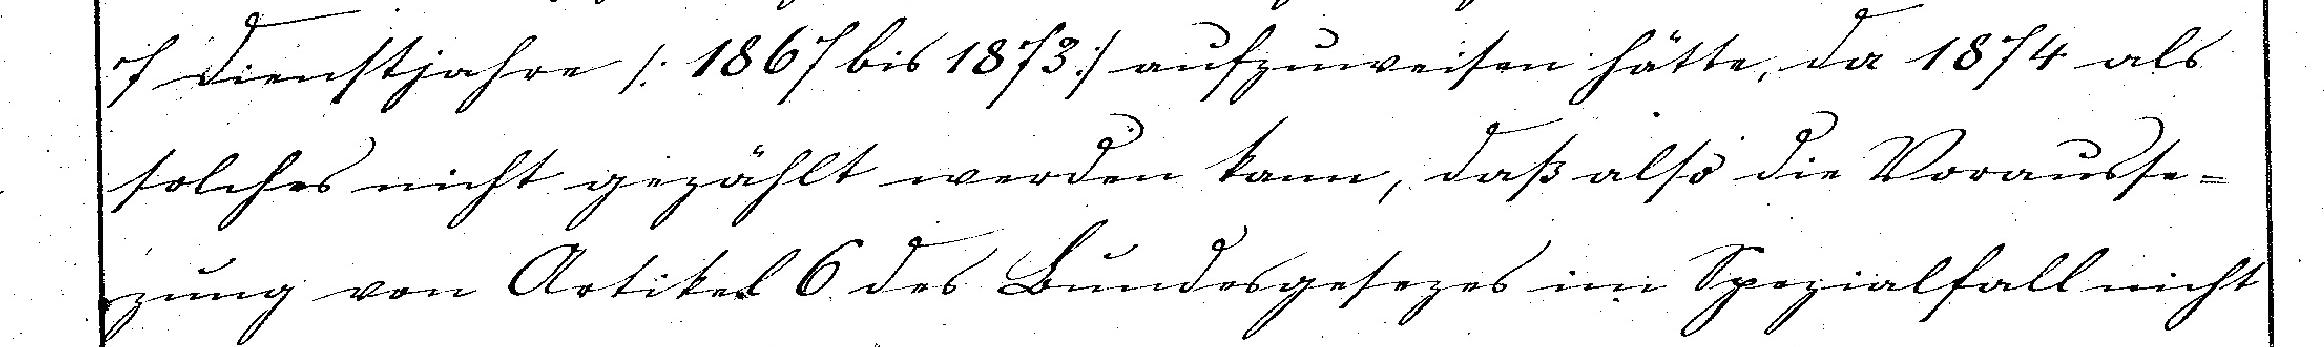 7 Dienstjahre /: 1867 bis 1873 :/ aufzuweisen hätte, da 1874 als
solches nicht gezählt werden kann, daß also die Vorausse=
zung von Artikel 6 des Bundesgesezes im Spezialfall nicht